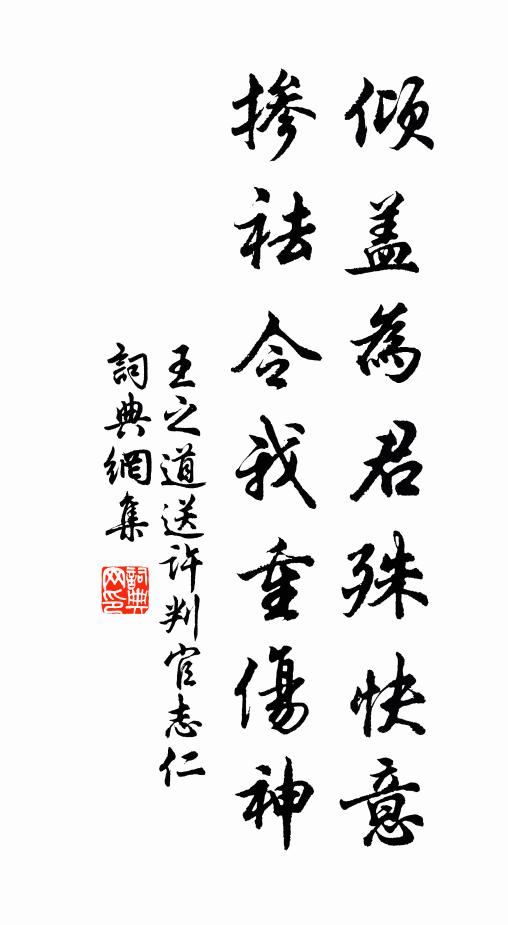 傾盖為君殊快意
掺袪令我重傷神
王之道送许判官志仁
詞典網集
詞典網印